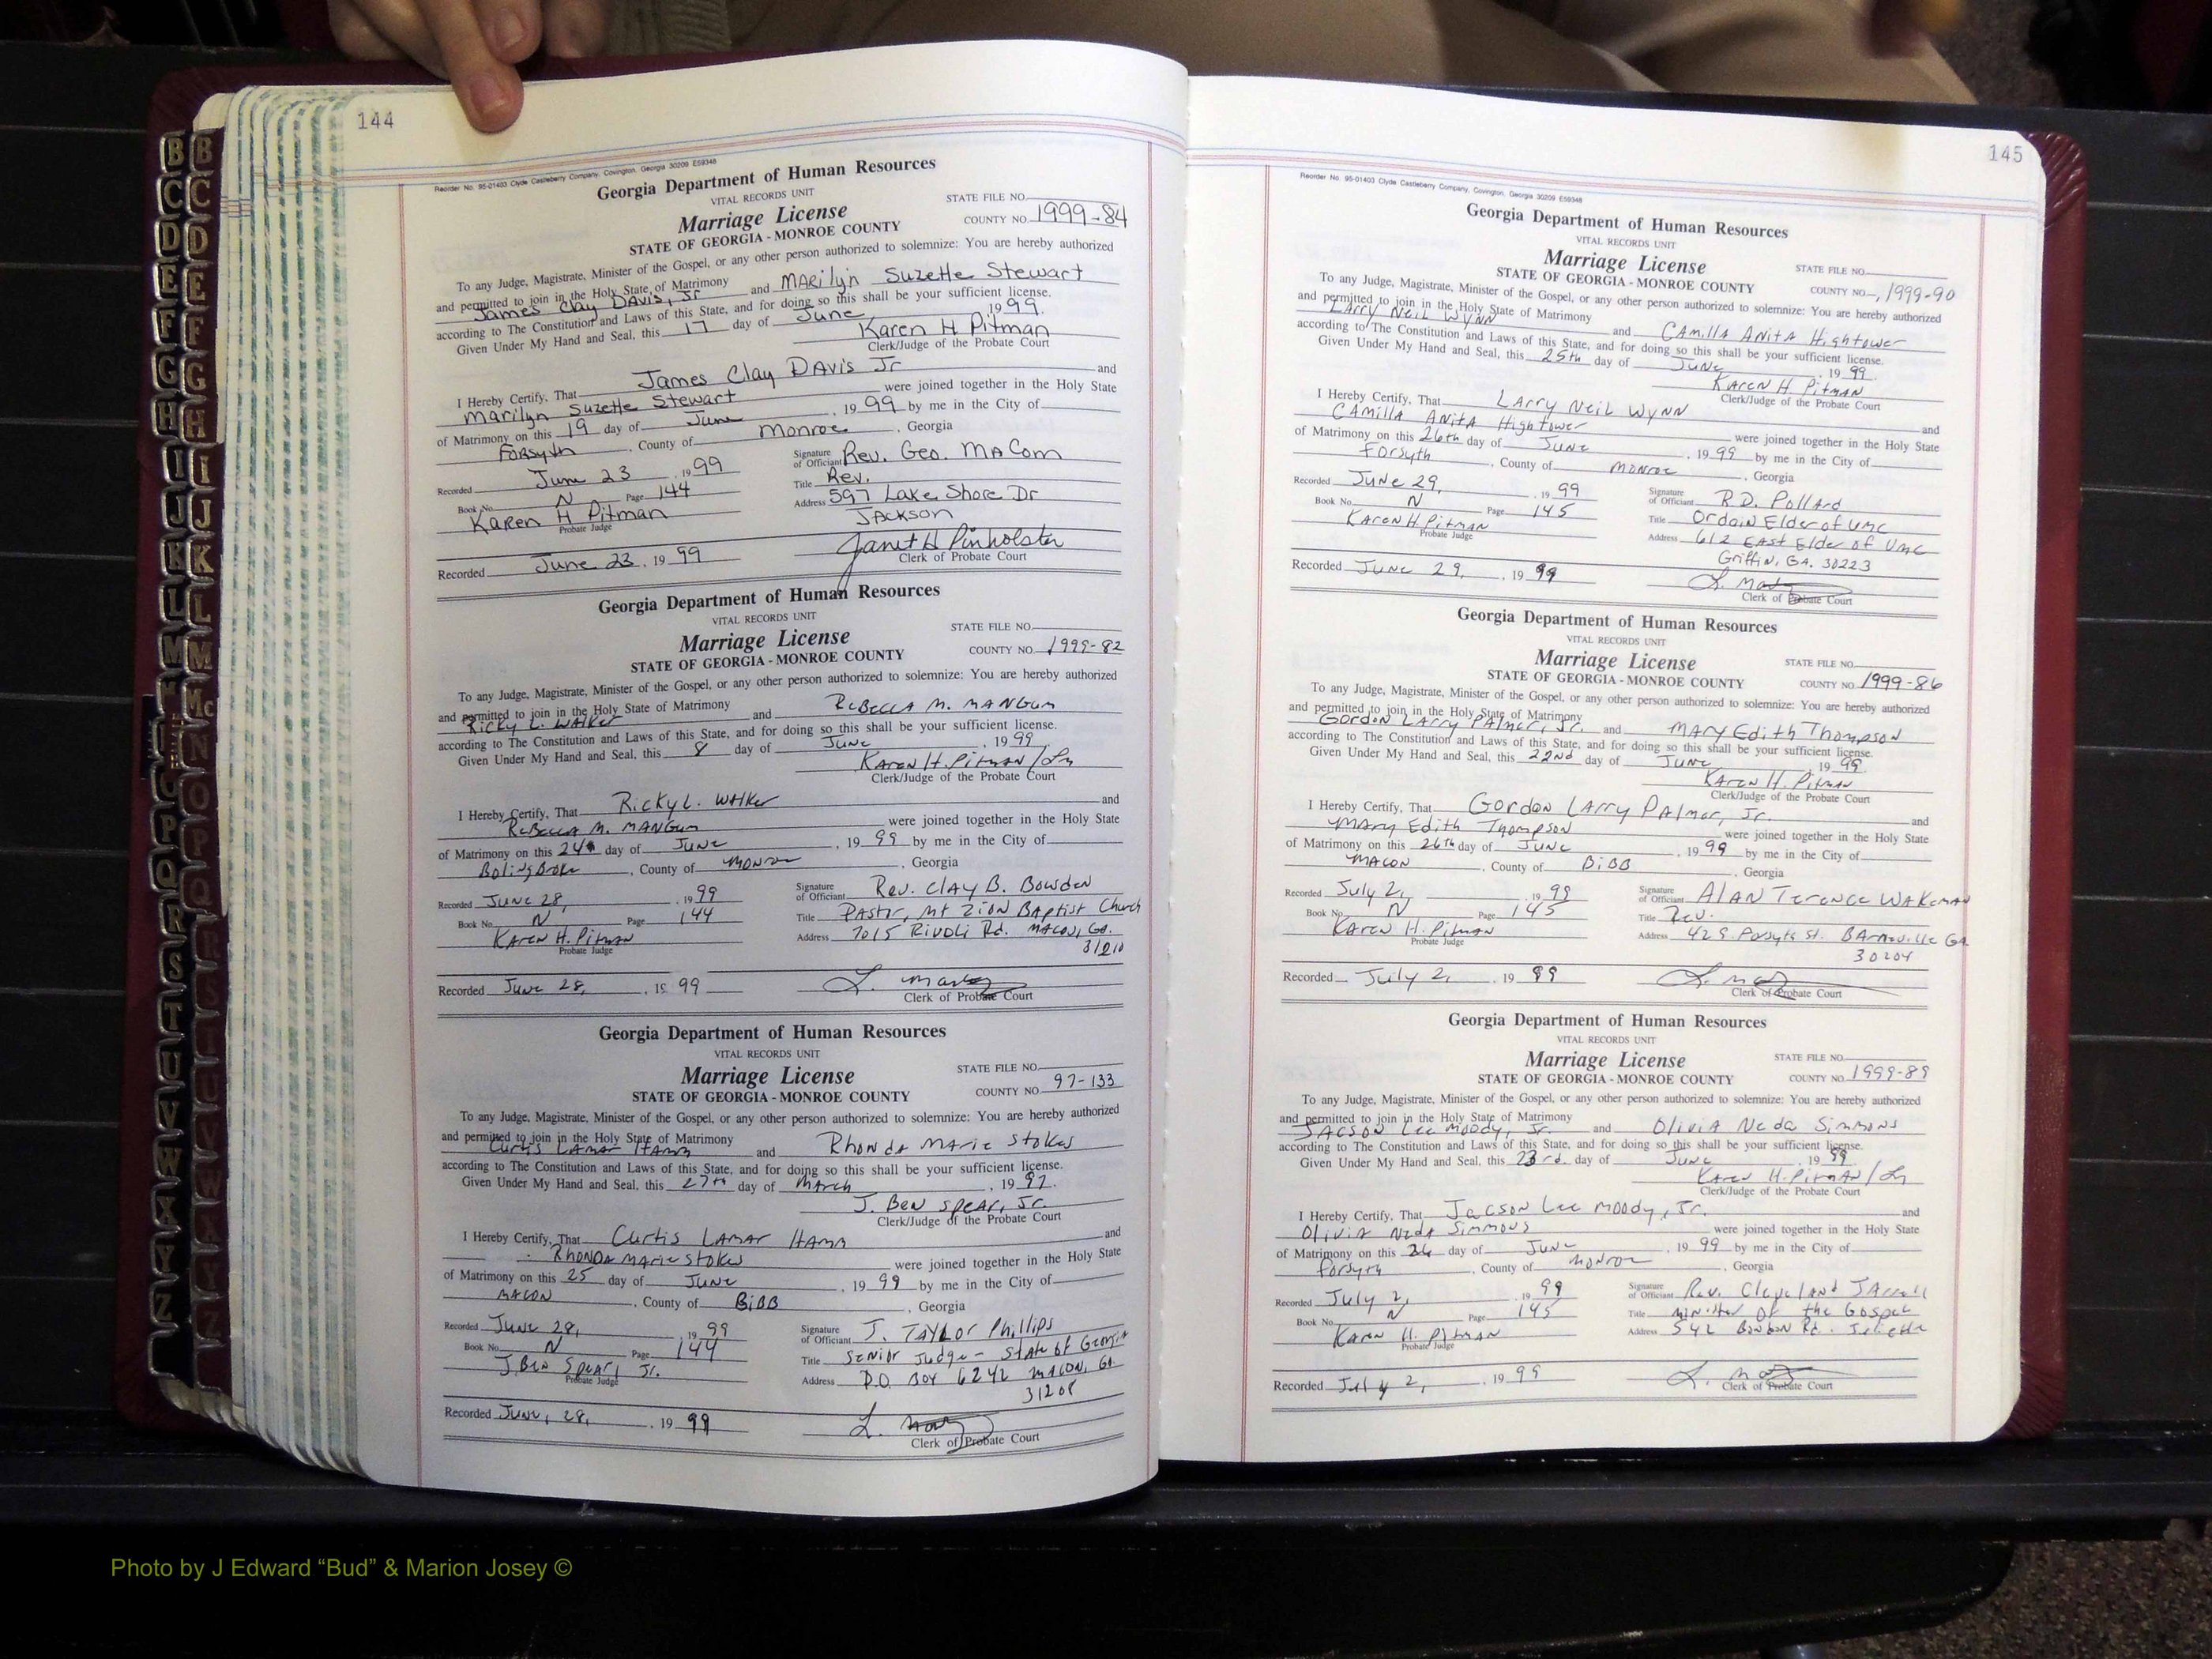 144
Reorder No. 95-01403 Clyde Castleberry Company, Covington, Georgia 30209 E59348
Georgia Department of Human Resources
VITAL RECORDS UNIT
Marriage License
STATE OF GEORGIA - MONROE COUNTY
STATE FILE NO.
COUNTY NO. 1999-84
To any Judge, Magistrate, Minister of the Gospel, or any other person authorized to solemnize: You are hereby authorized
and permitted to join in the Holy State of Matrimony
James Clay Davis, Jr and Marilyn Suzette Stewart
according to The Constitution and Laws of this State, and for doing so this shall be your sufficient license.
Given Under My Hand and Seal, this 17 day of June 1999.
Karen H Pitman
Clerk/Judge of the Probate Court
I Hereby Certify, That James Clay Davis Jr and
Marilyn Suzette Stewart were joined together in the Holy State
of Matrimony on this 19 day of June, 1999 by me in the City of
Forsyth, County of Monroe, Georgia
Recorded June 23, 1999
Book No. N Page 144
Karen H Pitman
Probate Judge
Signature of Officiant Rev. Geo. MaCom
Title Rev.
Address 597 Lake Shore Dr
Jackson
Recorded June 23, 1999
Janet H Pinholster
Clerk of Probate Court
Georgia Department of Human Resources
VITAL RECORDS UNIT
Marriage License
STATE OF GEORGIA - MONROE COUNTY
STATE FILE NO.
COUNTY NO. 1999-82
To any Judge, Magistrate, Minister of the Gospel, or any other person authorized to solemnize: You are hereby authorized
and permitted to join in the Holy State of Matrimony
Ricky L. Walker and Rebecca M. Mangum
according to The Constitution and Laws of this State, and for doing so this shall be your sufficient license.
Given Under My Hand and Seal, this 8 day of June, 1999
Karen H. Pitman/Lm
Clerk/Judge of the Probate Court
I Hereby Certify, That Ricky L. Walker and
Rebecca M. Mangum were joined together in the Holy State
of Matrimony on this 24 day of June, 1999 by me in the City of
Bolingbroke, County of Monroe, Georgia
Recorded June 28, 1999
Book No. N Page 144
Karen H. Pitman
Probate Judge
Signature of Officiant Rev. Clay B. Bowden
Title Pastor, Mt Zion Baptist Church
Address 7015 Rivoli Rd. Macon, Ga.
31210
Recorded June 28, 1999
Clerk of Probate Court
Georgia Department of Human Resources
VITAL RECORDS UNIT
Marriage License
STATE OF GEORGIA - MONROE COUNTY
STATE FILE NO.
COUNTY NO. 97-133
To any Judge, Magistrate, Minister of the Gospel, or any other person authorized to solemnize: You are hereby authorized
and permitted to join in the Holy State of Matrimony
Curtis Lamar Hamm and Rhonda Marie Stokes
according to The Constitution and Laws of this State, and for doing so this shall be your sufficient license.
Given Under My Hand and Seal, this 27th day of March, 1997.
J. Ben Spear, Jr.
Clerk/Judge of the Probate Court
I Hereby Certify, That Curtis Lamar Hamm and
Rhonda Marie Stokes were joined together in the Holy State
of Matrimony on this 25 day of June, 1999 by me in the City of
Macon, County of Bibb, Georgia
Recorded June 28, 1999
Book No. N Page 144
J. Ben Spear, Jr.
Probate Judge
Signature of Officiant J. Taylor Phillips
Title Senior Judge - State of Georgia
Address P.O. Box 6242 Macon, Ga
31208
Recorded June, 28, 1999
Clerk of Probate Court
145
Reorder No. 95-01403 Clyde Castleberry Company, Covington, Georgia 30209 E59348
Georgia Department of Human Resources
VITAL RECORDS UNIT
Marriage License
STATE OF GEORGIA - MONROE COUNTY
STATE FILE NO.
COUNTY NO. 1999-90
To any Judge, Magistrate, Minister of the Gospel, or any other person authorized to solemnize: You are hereby authorized
and permitted to join in the Holy State of Matrimony
Larry Neil Wynn and Camilla Anita Hightower
according to The Constitution and Laws of this State, and for doing so this shall be your sufficient license.
Given Under My Hand and Seal, this 25th day of June, 1999.
Karen H Pitman
Clerk/Judge of the Probate Court
I Hereby Certify, That Larry Neil Wynn and
Camilla Anita Hightower were joined together in the Holy State
of Matrimony on this 26th day of June, 1999 by me in the City of
Forsyth, County of Monroe, Georgia
Recorded June 29, 1999
Book No. N Page 145
Karen H. Pitman
Probate Judge
Signature of Officiant R.D. Pollard
Title Ordain Elder of UMC
Address 612 East Elder of UMC
Griffin, GA. 30223
Recorded June 29, 1999
Clerk of Probate Court
Georgia Department of Human Resources
VITAL RECORDS UNIT
Marriage License
STATE OF GEORGIA - MONROE COUNTY
STATE FILE NO.
COUNTY NO. 1999-86
To any Judge, Magistrate, Minister of the Gospel, or any other person authorized to solemnize: You are hereby authorized
and permitted to join in the Holy State of Matrimony
Gordon Larry Palmer, Jr. and Mary Edith Thompson
according to The Constitution and Laws of this State, and for doing so this shall be your sufficient license.
Given Under My Hand and Seal, this 22nd day of June, 1999.
Karen H. Pitman
Clerk/Judge of the Probate Court
I Hereby Certify, That Gordon Larry Palmer, Jr. and
Mary Edith Thompson were joined together in the Holy State
of Matrimony on this 26th day of June, 1999 by me in the City of
Macon, County of Bibb, Georgia
Recorded July 2, 1999
Book No. N Page 145
Karen H. Pitman
Probate Judge
Signature of Officiant Alan Terence Wakeman
Title Rev.
Address 429 Forsyth St. Barnesville GA.
30204
Recorded July 2, 1999
Clerk of Probate Court
Georgia Department of Human Resources
VITAL RECORDS UNIT
Marriage License
STATE OF GEORGIA - MONROE COUNTY
STATE FILE NO.
COUNTY NO. 1999-89
To any Judge, Magistrate, Minister of the Gospel, or any other person authorized to solemnize: You are hereby authorized
and permitted to join in the Holy State of Matrimony
Jacson Lee Moody, Jr. and Olivia Neda Simmons
according to The Constitution and Laws of this State, and for doing so this shall be your sufficient license.
Given Under My Hand and Seal, this 23rd day of June, 1999.
Karen H. Pitman/Lm
Clerk/Judge of the Probate Court
I Hereby Certify, That Jacson Lee Moody, Jr. and
Olivia Neda Simmons were joined together in the Holy State
of Matrimony on this 26 day of June, 1999 by me in the City of
Forsyth, County of Monroe, Georgia
Recorded July 2, 1999
Book No. N Page 145
Karen H. Pitman
Probate Judge
Signature of Officiant Rev. Cleveland Jarrell
Title Minister of the Gospel
Address 542 Rd. Juliette
Recorded July 2, 1999
Clerk of Probate Court
B B
C C
D D
E E
F F
G G
H H
I I
J J
K K
L L
M M
Mc
N
O
P P
Q Q
R R
S S
T T
U U
V V
W W
X X
Y Y
Z Z
Photo by J Edward “Bud” & Marion Josey ©